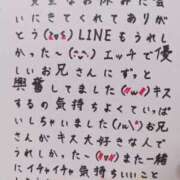 貴重なお休みに会
いにきてくれてありが
とう(≧▽≦)LINEもうれし
かった〜(^-^)エッチで優
しいお兄さんにずっと
興奮してました(〃ω〃)
するの気持ちよくていっぱ
いしちゃいました(ﾉω\*)お兄
さんがキス大好きな人で
うれしかった〜(〃ω〃)また一緒
にイチャイチャ気持ちいいこと